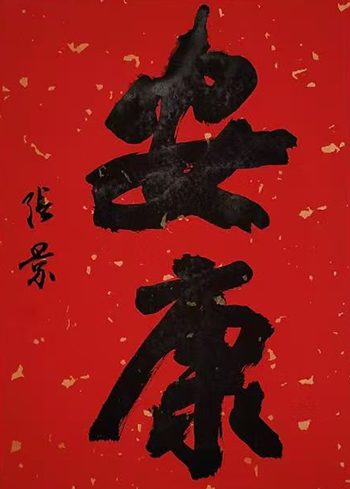 安康
张景